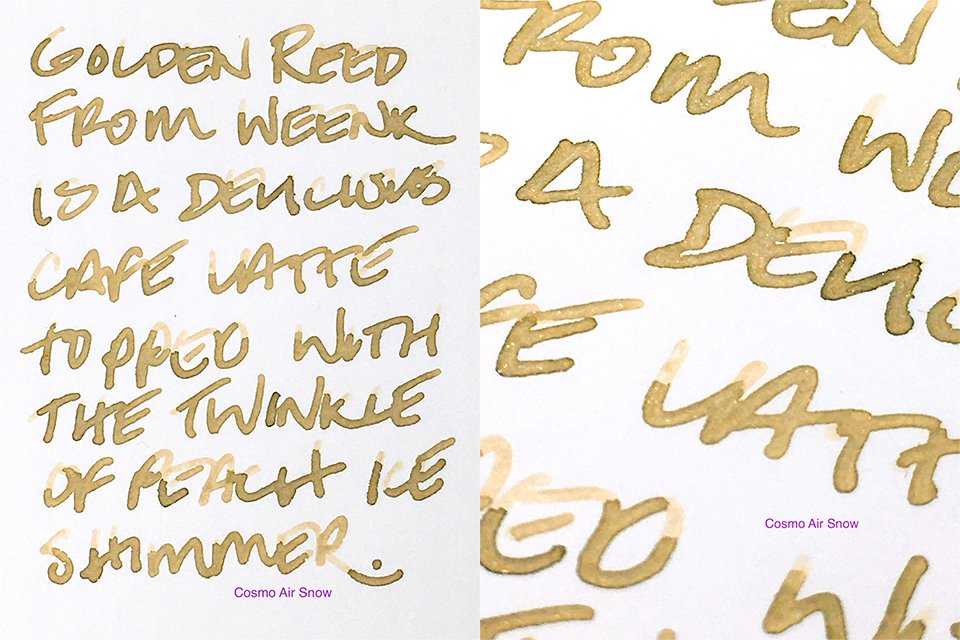 GOLDEN REED
FROM WEENK
IS A DELICIOUS
CAFE LATTE
TOPPED WITH
THE TWINKLE
OF PEACH ICE
SHIMMER.
Cosmo Air Snow
EN
ROM WE
A DELIC
FE LATT
ED WI
Cosmo Air Snow